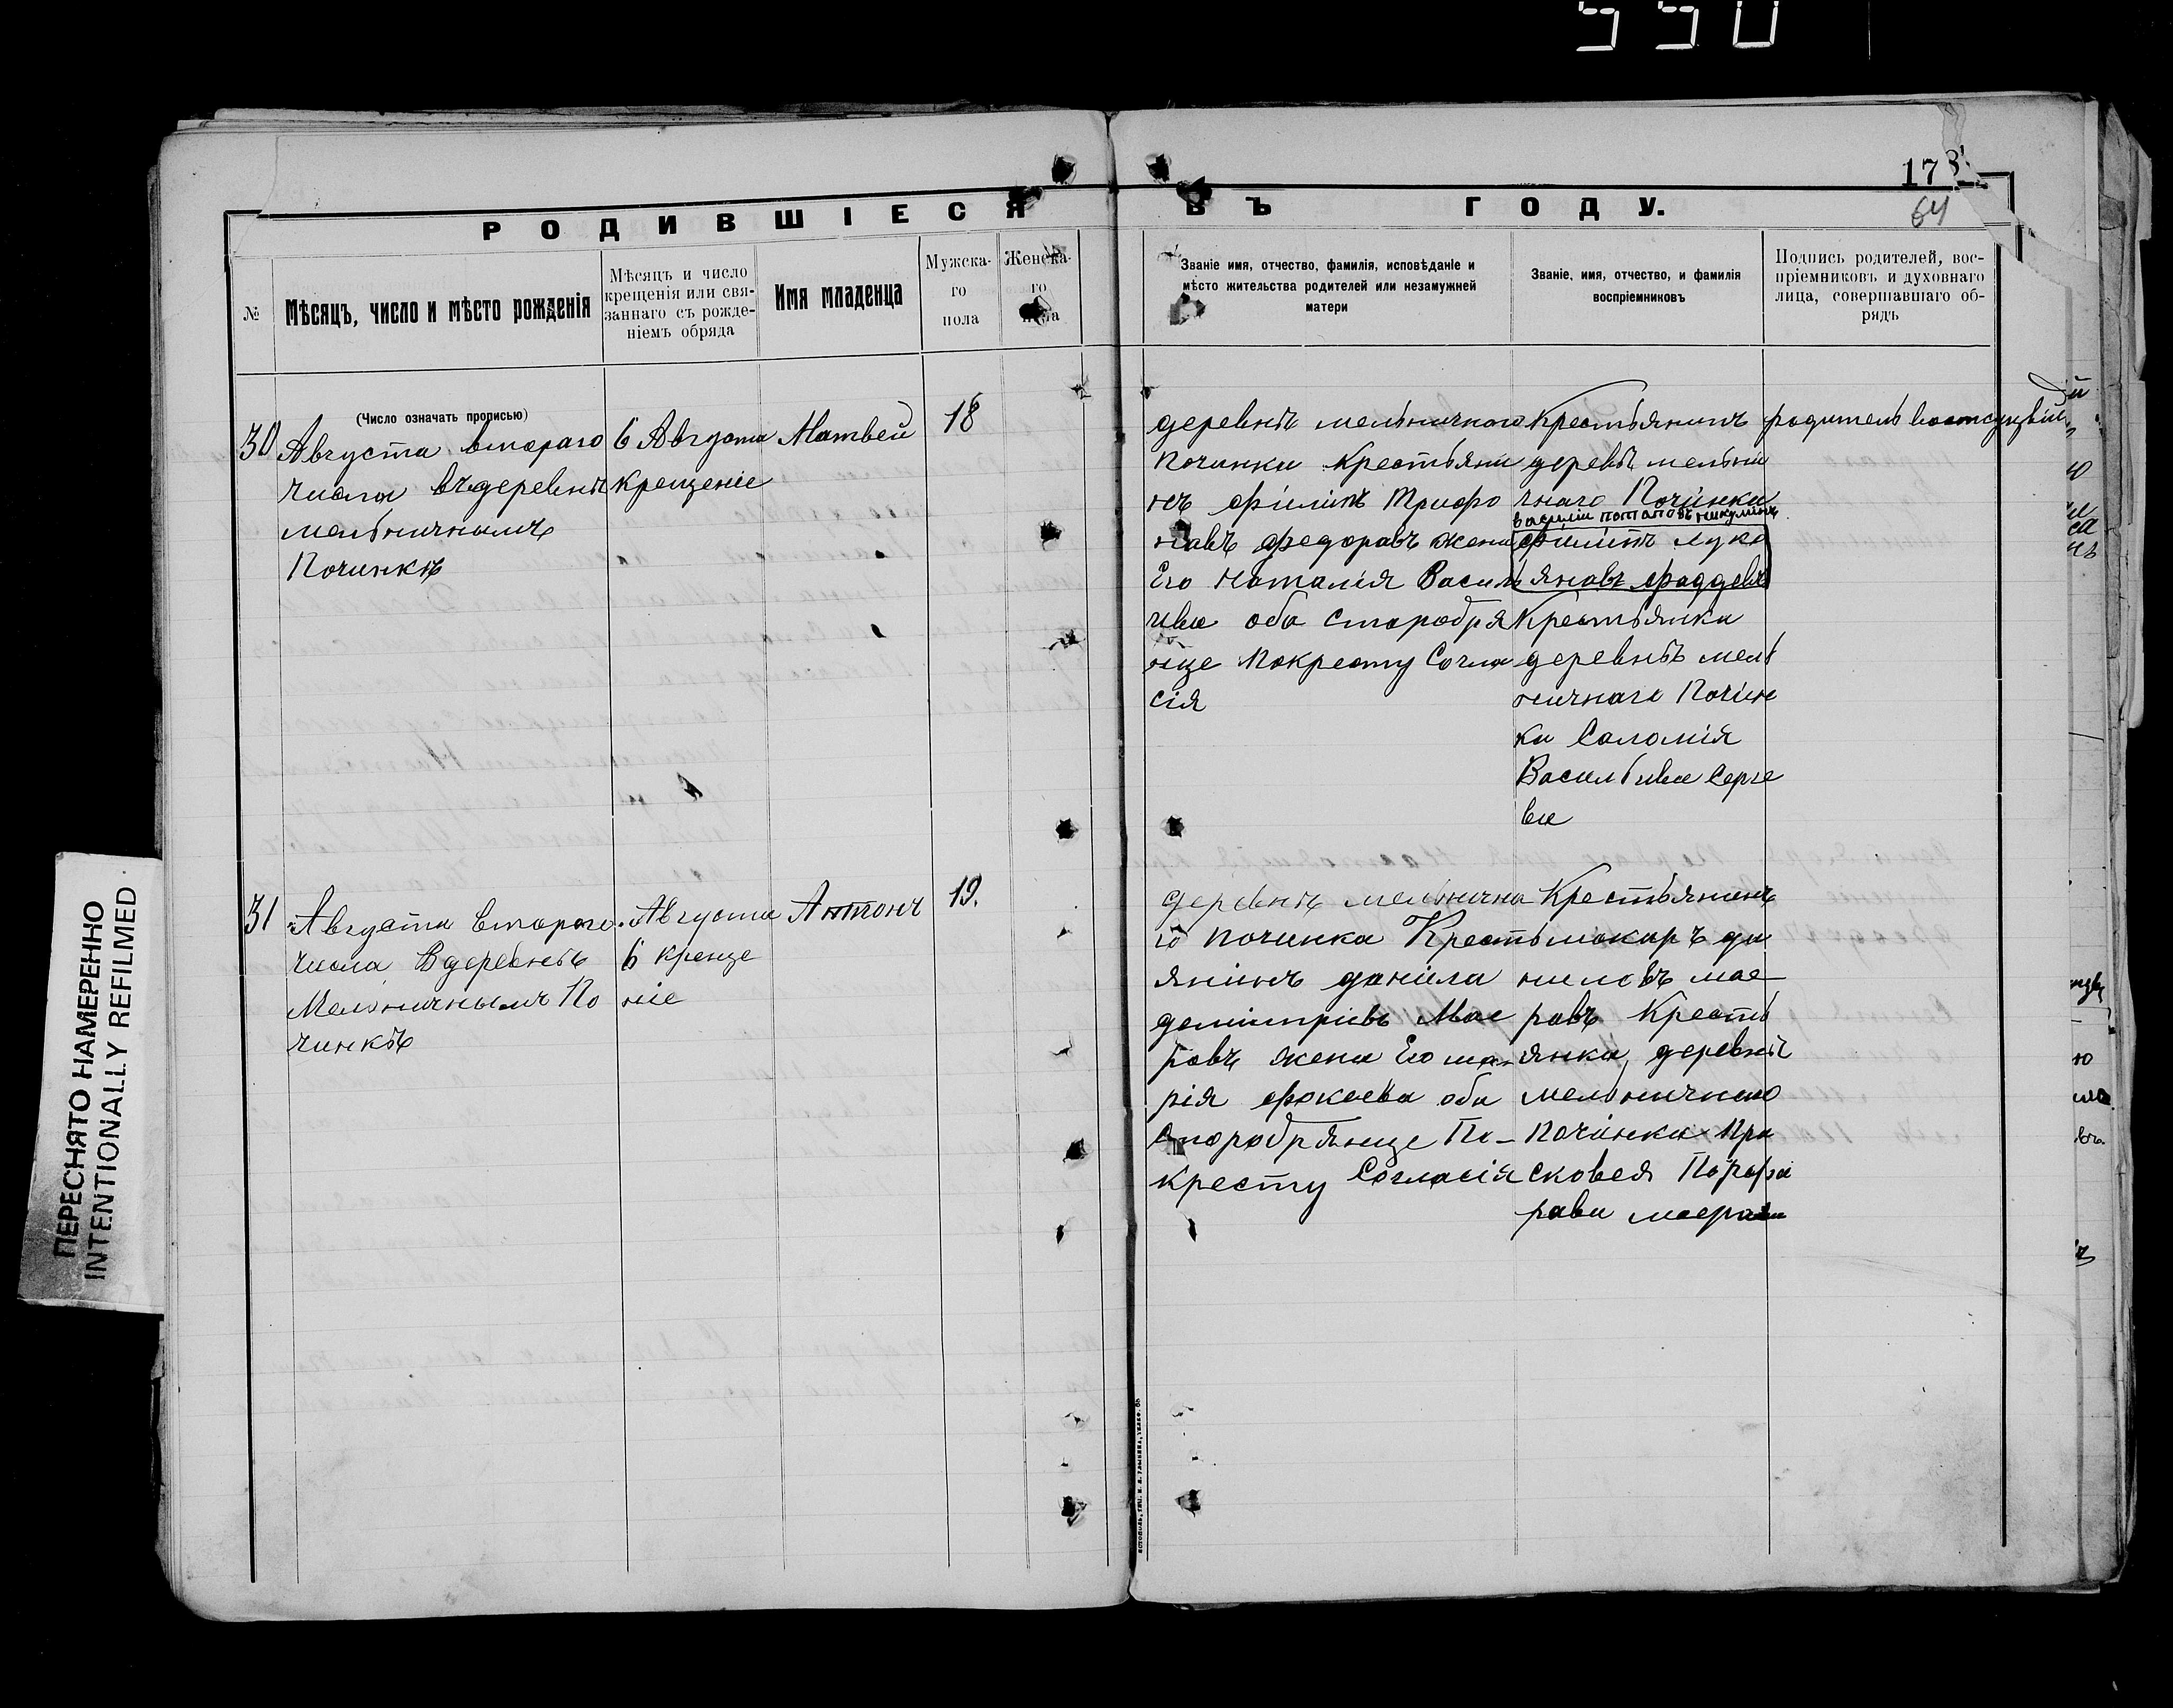 550
173
64
РОДИВШІЕСЯ ВЪ ГОДУ.
№
Мѣсяцъ, число и мѣсто рожденія
Мѣсяцъ и число
крещенія или свя-
заннаго съ рожде-
ніемъ обряда
Имя младенца
Мужска-
го
пола
Женска-
го
пола
Званіе имя, отчество, фамилія, исповѣданіе и
мѣсто жительства родителей или незамужней
матери
Званіе, имя, отчество, и фамилія
воспріемниковъ
Подпись родителей, вос-
пріемниковъ и духовнаго
лица, совершавшаго об-
рядъ
(Число означать прописью)
30
Августа втораго
числа въ деревнѣ
мельничнымъ
Починкѣ
6 Августа
крещеніе
Матвей
18
деревнѣ мельничнаго
Починки Крестьяни
нъ филипъ Трифо
навъ федоравъ жена
Его Наталія Василь
ива оба старобря
нце Покресту Согла
сія
Крестьянинъ
деревѣ мельни
чнаго Починки
василіи потаповъ никулинъ
филипъ лука
яновъ фаддевъ
Крестьянка
деревнѣ мель
ничнаго Почин
ки Саломія
Васильива Серге
ва
родитель
31
Августа втораго
числа Вдеревнѣ
Мельничнымъ По
чинкѣ
Августа
6 креще
ніе
Антонъ
19.
деревнѣ мельнична
го починка Кресть
янинъ данила
демитривъ Мае
ровъ жена Его ма
рія фокеева оба
старобрянце По-
кресту Согласія
Крестьянинъ
макаръ да
ниловъ мае
равъ Кресть
янка, деревнѣ
мельничнаго
Починки Пра
сковея Порфи
рава маерава
ПЕРЕСНЯТО НАМЕРЕННО
INTENTIONALLY REFILMED